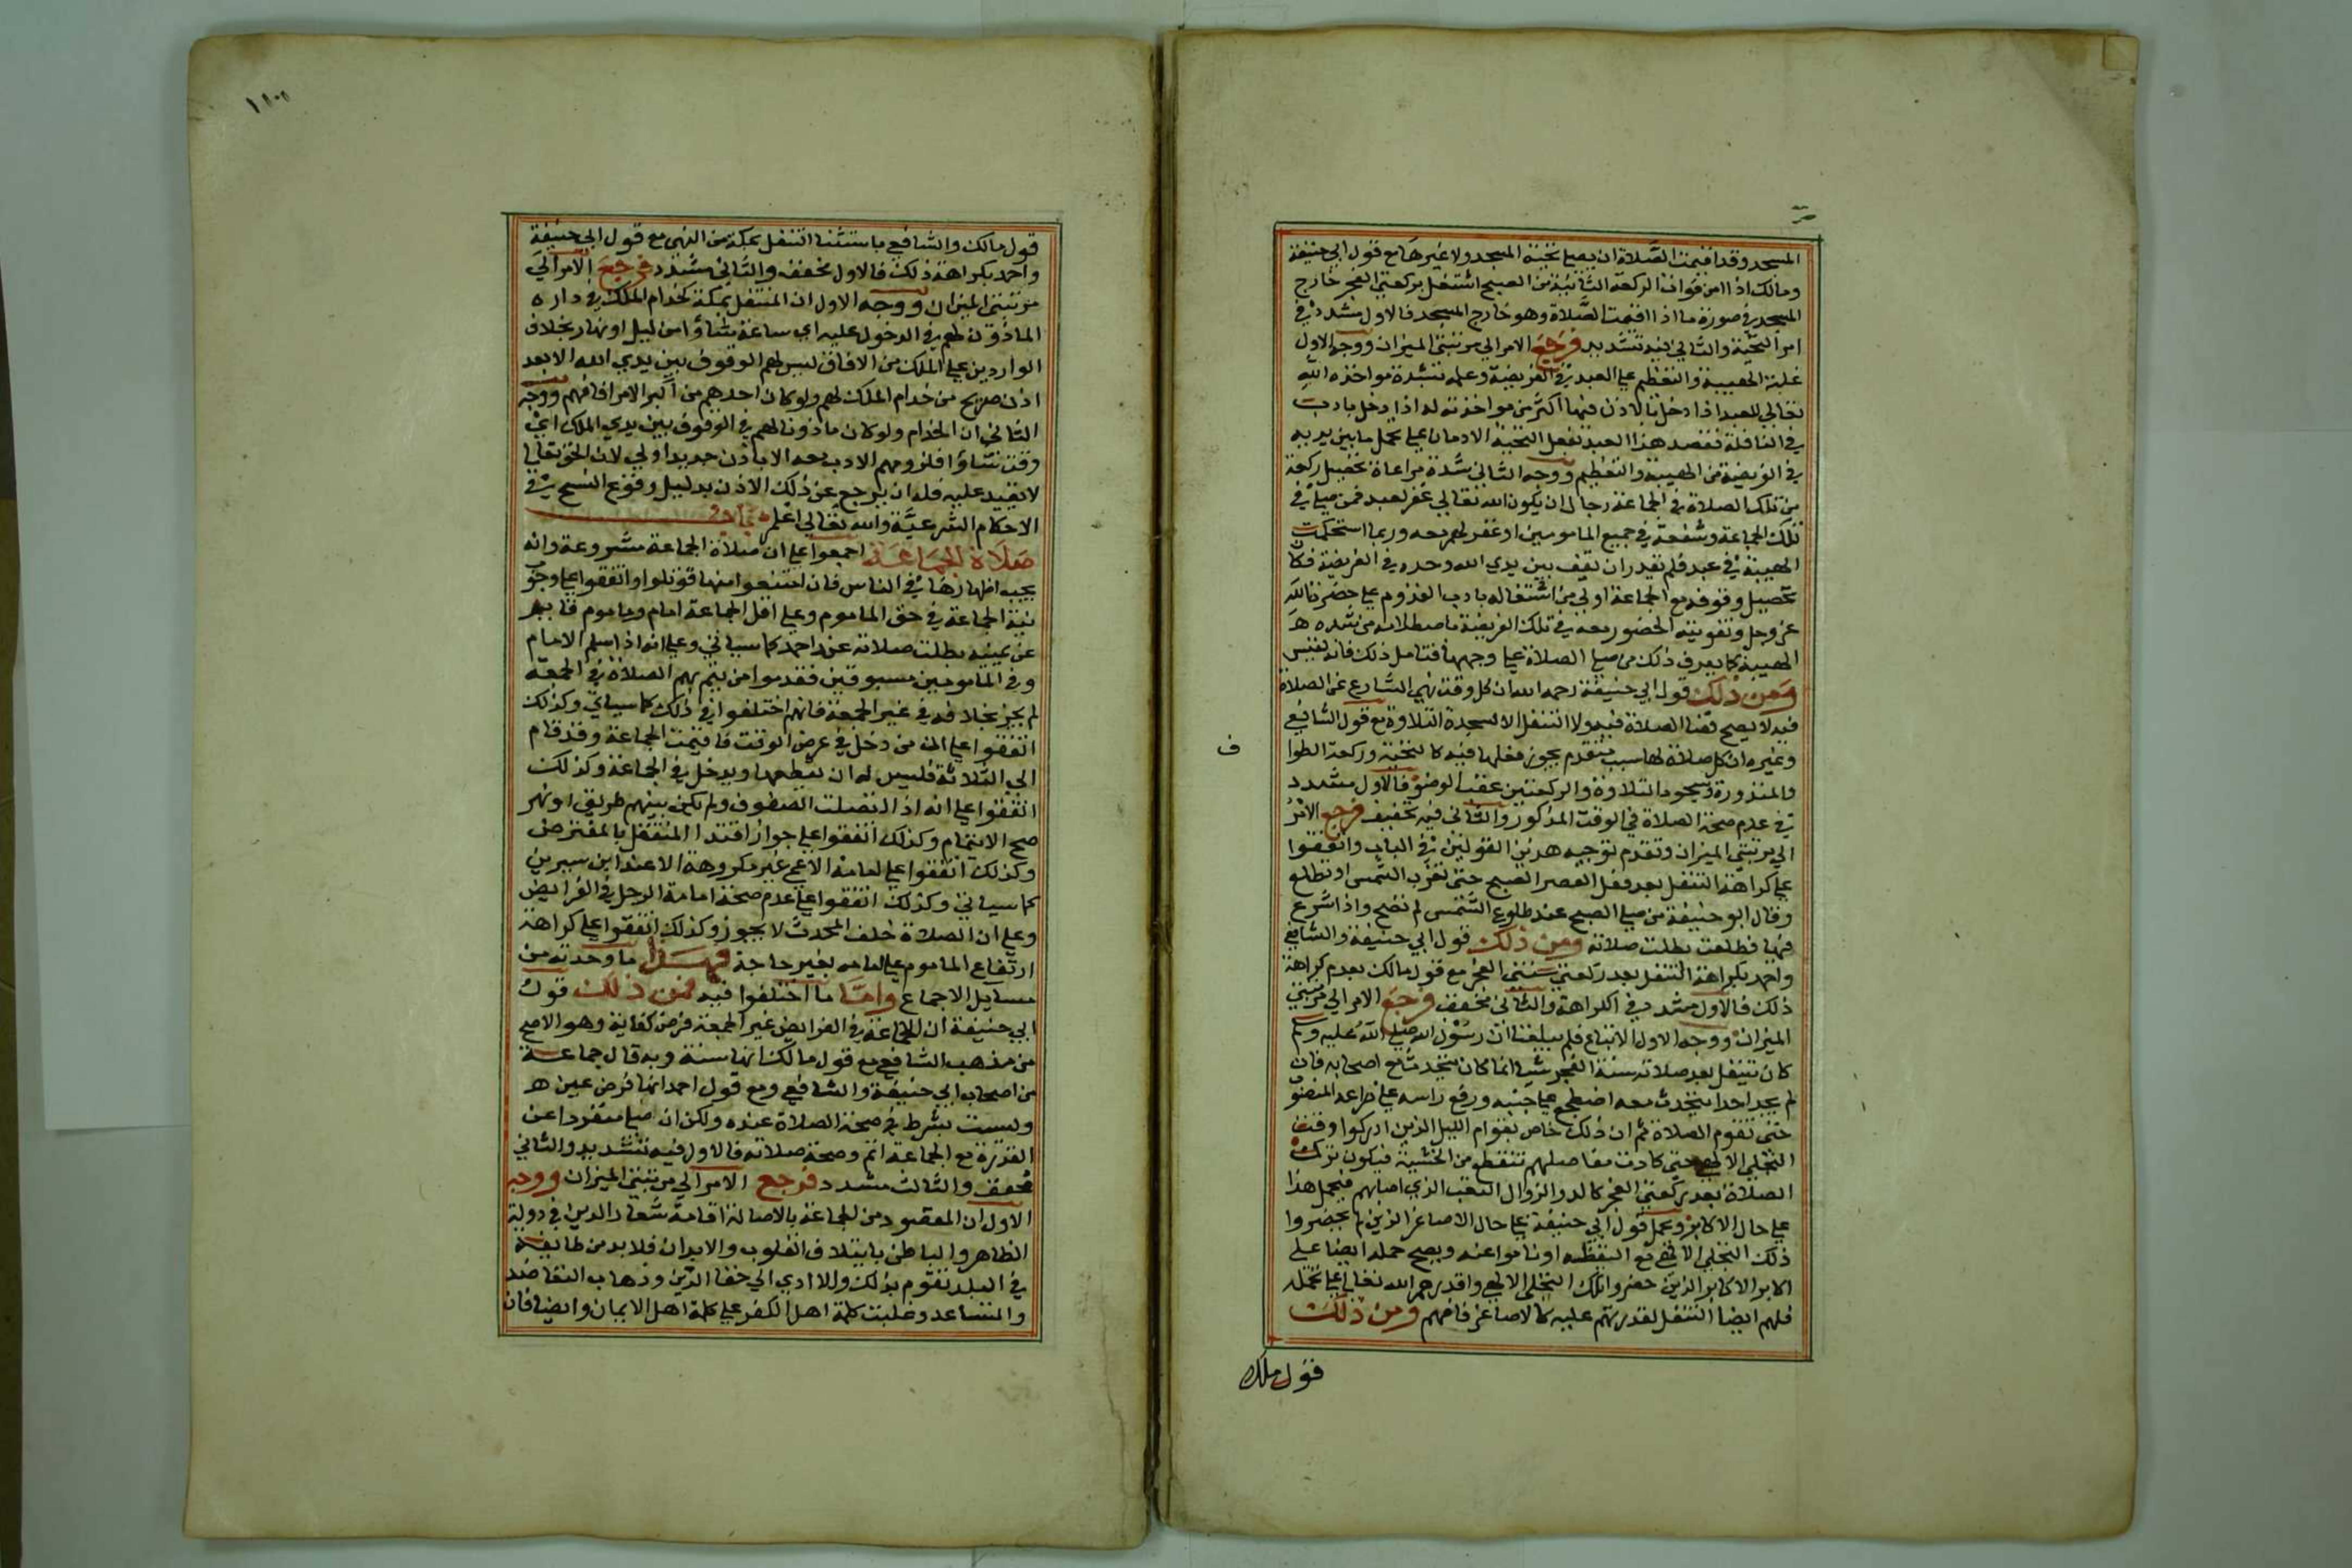 المسجد وقد اقيمت الصلاة ان يصلي تحية المسجد ولا غيرها مع قول ابي حنيفة
ومالك اذا امن فوات الركعة الثانية من الصبح اشتغل بركعتي الفجر خارج
المسجد في صورة ما اذا اقيمت الصلاة وهو خارج المسجد فالاول مشدد في
امر التحية والثاني فيه تشديد فرجع الامر الي مرتبتي الميزان ووجه الاول
غلبة الهيبة والتعظيم علي العبد في الفريضة وعلمه بشدة مواخذة الله
تعالي للعبد اذا دخل بالاذن فيها اكثر من مواخذته له اذا دخل بادب
في النافلة فقصد هذا العبد بفعل التحية الادمان علي تحمل ما بين يديه
في الفريضة من الهيبة والتعظيم ووجه الثاني شدة مراعاة تحصيل ركعة
من تلك الصلاة في الجماعة رجاء ان يكون الله تعالي غفر لعبد ممن صلي في
تلك الجماعة وشفعه في جميع المامومين او غفر لهم معه وربما استحكمت
الهيبة في عبد فلم يقدر ان يقف بين يدي الله وحده في الفريضة فكان
تحصيل وقوفه مع الجماعة اولي من اشتغاله بادب القدوم علي حضرة الله
عز وجل وتفويته الحضور معه في تلك الفريضة باصطلامه من شدة
الهيبة كما يعرف ذلك من صلي الصلاة علي وجهها فتامل ذلك فانه نفيس
ومن ذلك قول ابي حنيفة رحمه الله ان كل وقت نهي الشارع عن الصلاة
فيه لا يصح قضا الصلاة فيه ولا التنفل الا سجدة التلاوة مع قول الشافعي
وغيره ان كل صلاة لها سبب متقدم يجوز فعلها فيه كالتحية وركعة الطوا
والمنذورة وسجود التلاوة والركعتين عقب الوضو فالاول مشدد
في عدم صحة الصلاة في الوقت المذكور والثاني فيه تخفيف فرجع الامر
الي مرتبتي الميزان وتقدم توجيه هذين القولين في الباب واتفقوا
علي كراهة التنفل بعد فعل العصر والصبح حتي تغرب الشمس او تطلع
وقال ابو حنيفة من صلي الصبح عند طلوع الشمس لم تصح واذا شرع
فيها فطلعت بطلت صلاته ومن ذلك قول ابي حنيفة والشافعي
واحمد بكراهة التنفل بعد ركعتي سنة الفجر مع قول مالك بعدم كراهة
ذلك فالاول مشدد في الكراهة والثاني مخفف فرجع الامر الي مرتبتي
الميزان ووجه الاول الاتباع فلم يبلغنا ان رسول الله صلي الله عليه وسلم
كان يتنفل بعد صلاته سنة الفجر شيا انما كان يتحدث مع اصحابه فان
لم يجد احدا يتحدث معه اضطجع علي جنبه ورفع راسه علي ذراعه المنصو
حتي تقوم الصلاة ثم ان ذلك خاص بقوام الليل الذين ادركوا وقت
التجلي الالهي حتي كادت مفاصلهم تتقطع من الخشية فيكون ترك
الصلاة بعد ركعتي الفجر كالدوا لزوال التعب الذي اصابهم فيحمل هذا
علي حال الاكابر ويحمل قول ابي حنيفة علي حال الاصاغر الذين لم يحضروا
ذلك التجلي الالهي مع اليقظة او ناموا عنه ويصح حمله ايضا علي
اكابر الاكابر الذين حضروا تلك التجلي الالهي واقدرهم الله تعالي علي تحمله
فلهم ايضا التنفل لقدرتهم عليه كالاصاغر فافهم ومن ذلك
ف
قول ملك
قول مالك والشافعي باستثنا التنفل بمكة من النهي مع قول ابي حنيفة
واحمد بكراهة ذلك فالاول مخفف والثاني مشدد فرجع الامر الي
مرتبتي الميزان ووجه الاول ان المتنفل بمكة كخدام الملك في داره
الماذون لهم في الدخول عليه اي ساعة شاؤا من ليل او نهار بخلاف
الواردين علي الملك من الافاق ليس لهم الوقوف بين يدي الله الا بعد
اذن صريح من خدام الملك لهم ولو كان احدهم من اكبر الامرا فافهم ووجه
الثاني ان الخدام ولو كان ماذونا لهم في الوقوف بين يدي الملك اي
وقت شاؤا فلزومهم الادب معه الا باذن جديد اولي لان الحق تعالي
لا تقييد عليه فله ان يرجع عن ذلك الاذن بدليل وقوع النسخ في
الاحكام الشرعية والله تعالي اعلم باب
صلاة الجماعة اجمعوا علي ان صلاة الجماعة مشروعة وانه
يجب اظهارها في الناس فان امتنعوا منها قوتلوا واتفقوا علي وجوب
نية الجماعة في حق الماموم وعلي ان اقل الجماعة امام وماموم قايم
عن يمينه بطلت صلاته عند احمد كما سياتي وعلي انه اذا سلم الامام
وفي المامومين مسبوقين فقدموا من يتم بهم الصلاة في الجمعة
لم يجز بخلافه في غير الجمعة فانهم اختلفوا في ذلك كما سياتي وكذلك
اتفقوا علي انه من دخل في عرض الوقت فاقيمت الجماعة وقد قام
الي الثلاثة فليس له ان يقطعها ويدخل في الجماعة وكذلك
اتفقوا علي انه اذا اتصلت الصفوف ولم يكن بينهم طريق او نهر
صح الايتمام وكذلك اتفقوا علي جواز اقتدا المتنفل بالمفترض
وكذلك اتفقوا علي امامة الاعمي غير مكروهة الا عند ابن سيرين
كما سياتي وكذلك اتفقوا علي عدم صحة امامة الرجل في الفرايض
وعلي ان الصلاة خلف المحدث لا يجوز وكذلك اتفقوا علي كراهة
ارتفاع الماموم علي امامه بغير حاجة فهذا ما وجدته من
مسايل الاجماع واما ما اختلفوا فيه فمن ذلك قول
ابي حنيفة ان الجماعة في الفرايض غير الجمعة فرض كفاية وهو الاصح
من مذهب الشافعي مع قول مالك انها سنة وبه قال جماعة
من اصحاب ابي حنيفة والشافعي ومع قول احمد انها فرض عين
وليست بشرط في صحة الصلاة عنده ولكن ان صلي منفردا عن
القدرة مع الجماعة اثم وصحة صلاته فالاول فيه تشديد والثاني
مخفف والثالث مشدد فرجع الامر الي مرتبتي الميزان ووجه
الاول ان المقصود من الجماعة بالاصالة اقامة شعار الدين في دولة
الظاهر والباطن بايتلاف القلوب والابدان فلا بد من طايفة
في البلد تقوم بذلك والا ادي الي خفا الدين وذهاب التعاضد
والمتساعد وغلبت كلمة اهل الكفر علي كلمة اهل الايمان وايضا فان